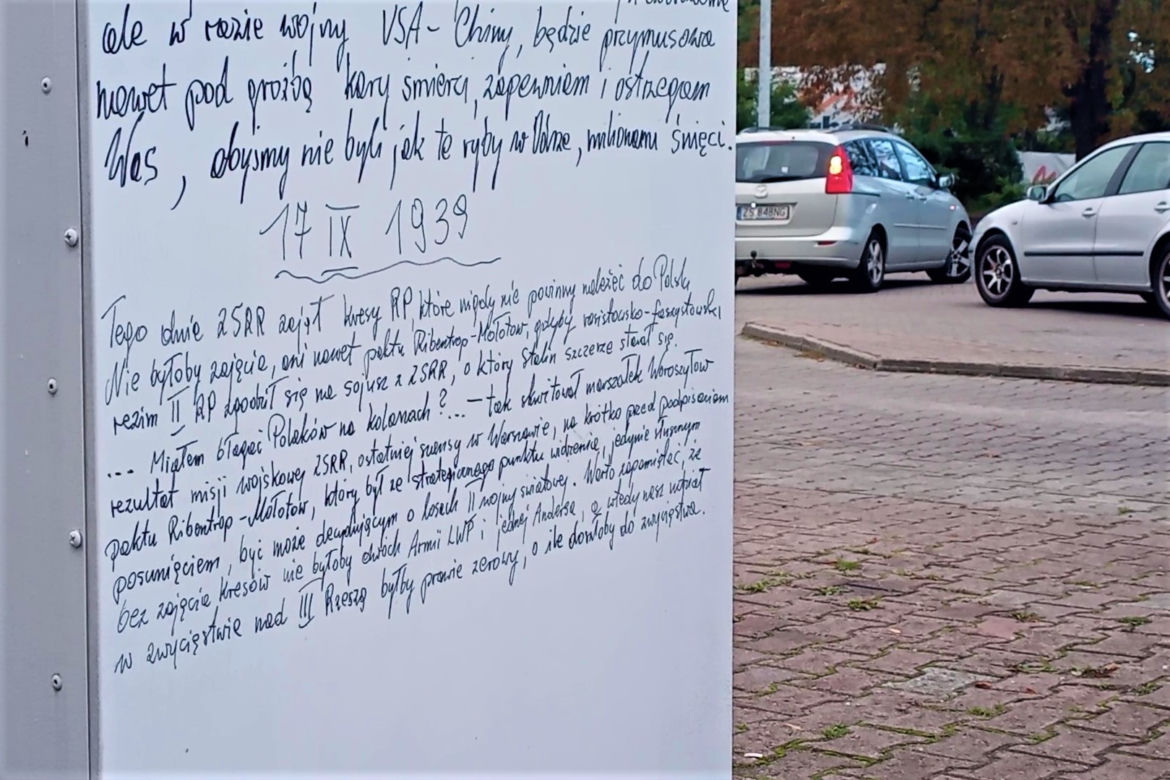 ale w razie wojny USA - Chiny, będzie przymusowa
nawet pod groźbą kary śmierci, zapewniam i ostrzegam
Was, abyśmy nie byli jak te ryby w Odrze, milionami śnięci.
17 IX 1939
Tego dnia ZSRR zajął kresy RP, które nigdy nie powinny należeć do Polski
Nie byłoby zajęcia, ani nawet paktu Ribentrop-Mołotow, gdyby rasistowsko-faszystowski
reżim II RP zgodził się na sojusz z ZSRR, o który Stalin szczerze starał się.
... Miałem błagać Polaków na kolanach?... - tak skwitował marszałek Woroszyłow
rezultat misji wojskowej ZSRR, ostatniej szansy w Warszawie, na krótko przed podpisaniem
paktu Ribentrop-Mołotow, który był ze strategicznego punktu widzenia, jedynie słusznym
posunięciem, być może decydującym o losach II wojny światowej. Warto zapamiętać, że
bez zajęcia kresów nie byłoby dwóch Armii LWP i jednej Andersa, a wtedy nasz udział
w zwycięstwie nad III Rzeszą byłby prawie zerowy, o ile doszłoby do zwycięstwa.
ZS 848NG